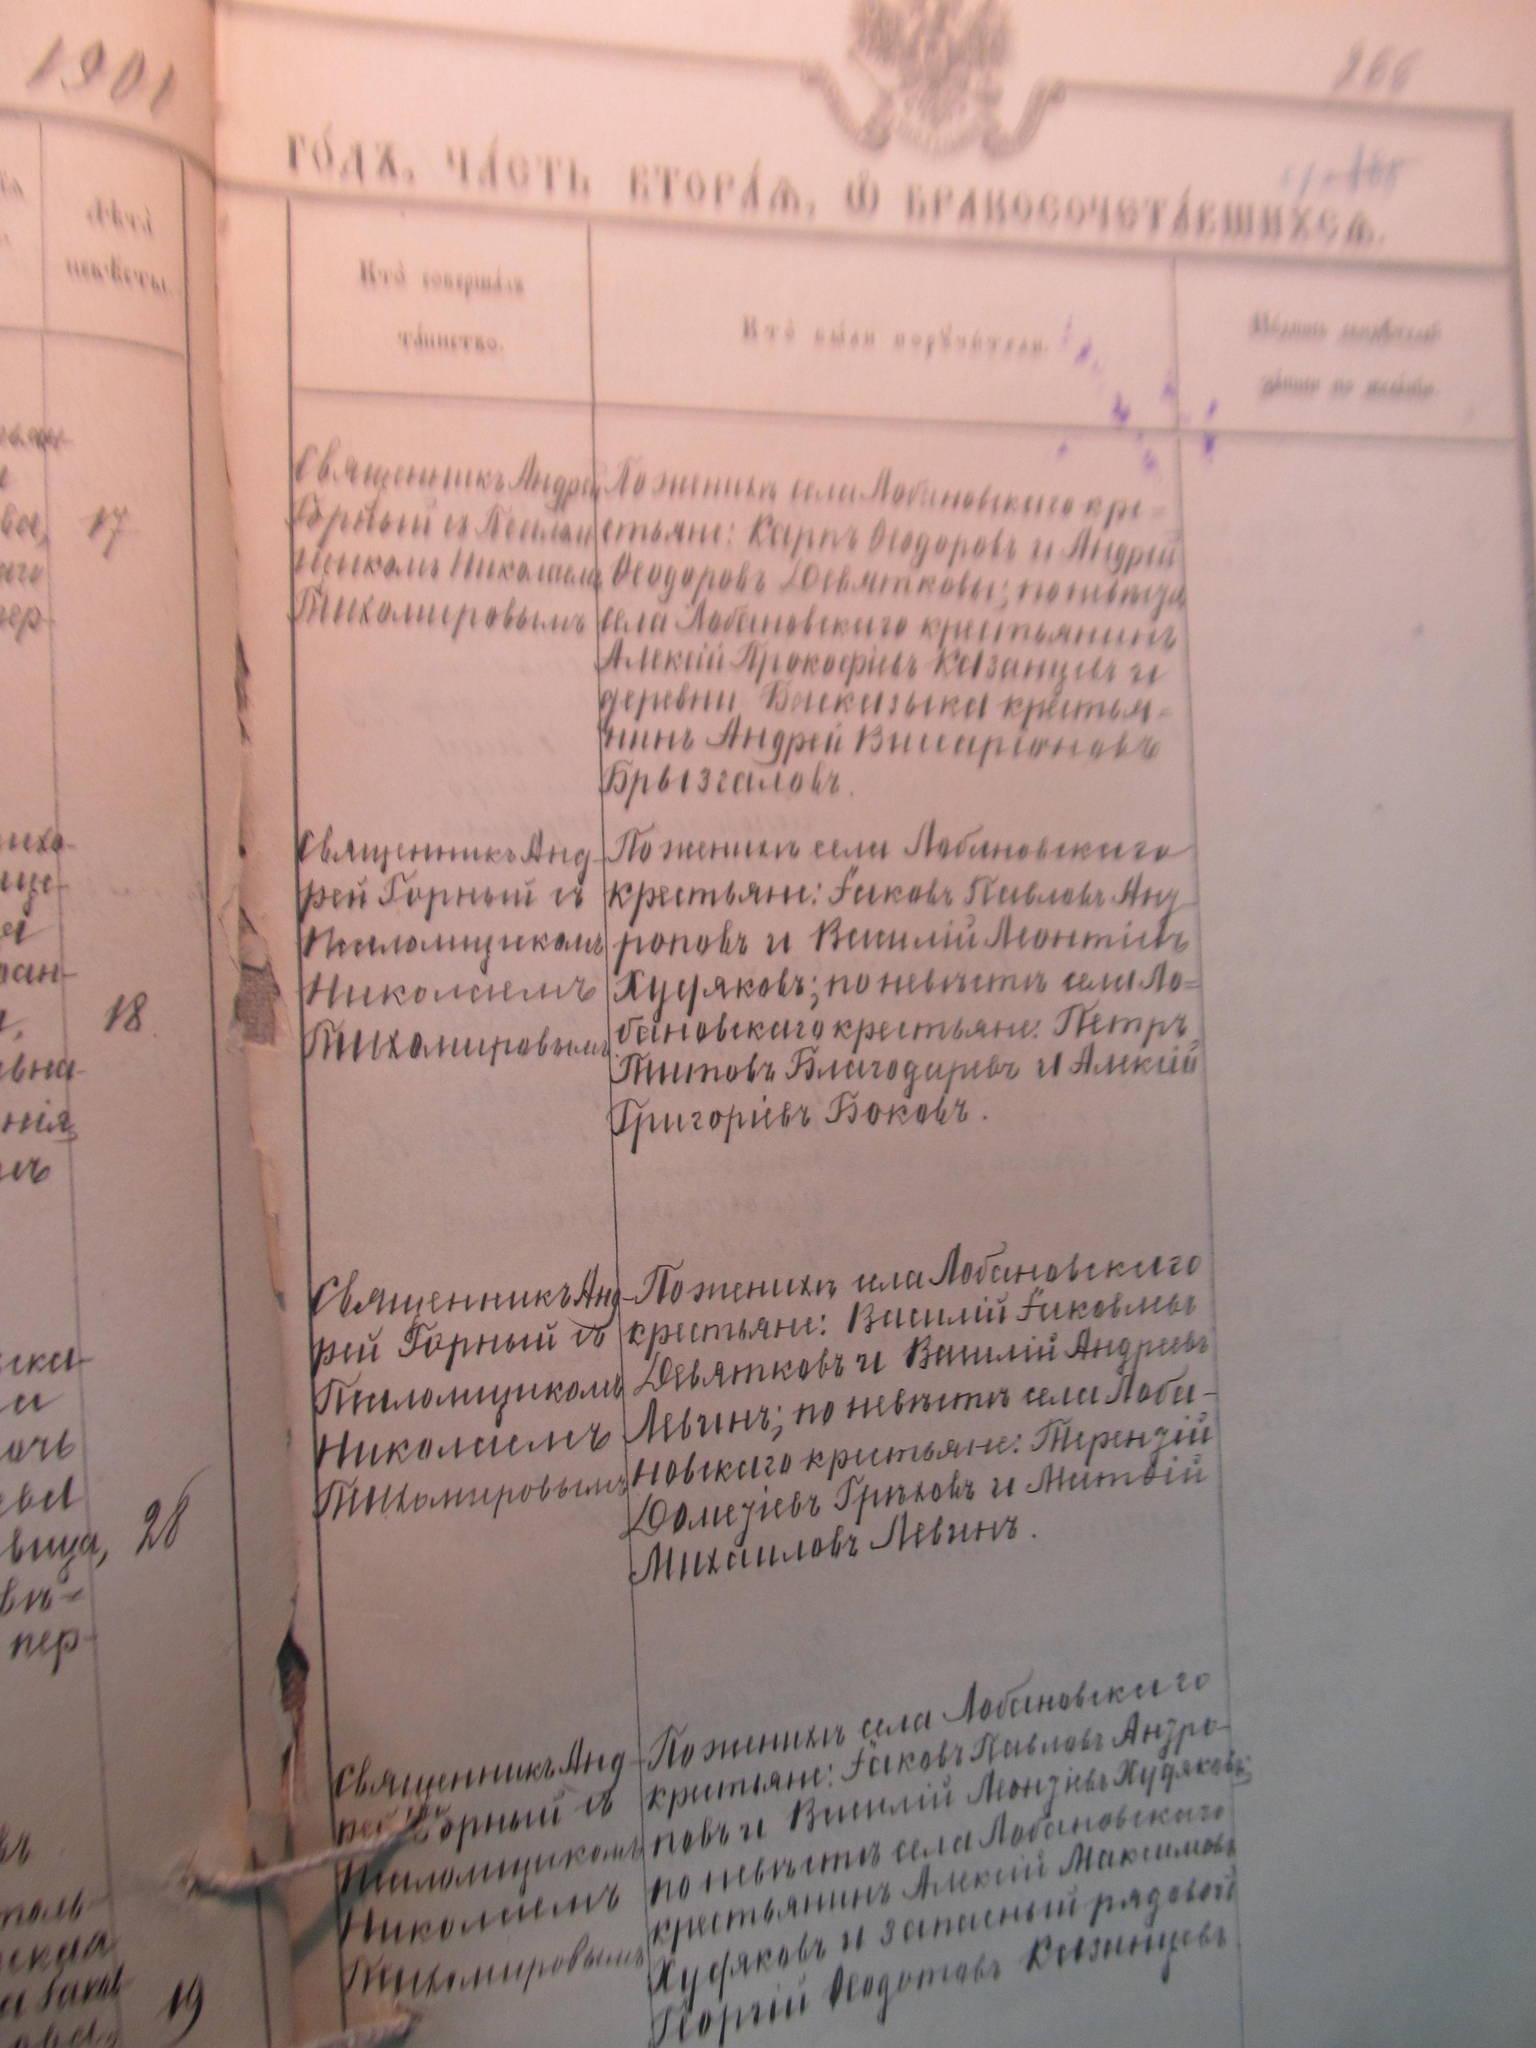 1901
266
ГО́ДѢ, ЧА́СТЬ ВТОРА́Ѧ, Ѿ БРАКОСОЧЕТА́ВШИХСѦ.
лѣта̀
невѣ́сты.
Кто̀ соверша́лъ
та́инство.
Кто̀ бы́ли порꙋчи́тели.
17
18
28
19
Священникъ Андрей
Горный съ Псалом
щикомъ Николаемъ
Тихомировымъ
По женихѣ села Лобановскаго кре-
стьяне: Карпъ Ѳеодоровъ и Андрей
Ѳеодоровъ Девятковы; по невѣстѣ
села Лобановскаго крестьянинъ
Алексій Прокофіевъ Казанцевъ и
деревни Баксызыка крестья-
нинъ Андрей Висаріоновъ
Брызгаловъ.
Священникъ Анд-
рей Горный съ
Псаломщикомъ
Николаемъ
Тихомировымъ
По женихѣ села Лобановскаго
крестьяне: Іаковъ Павловъ Анд
роповъ и Василій Леонтіевъ
Худяковъ; по невѣстѣ села Ло-
бановскаго крестьяне: Петръ
Титовъ Благодаревъ и Алексій
Григоріевъ Боковъ.
Священникъ Анд-
рей Горный съ
Псаломщикомъ
Николаемъ
Тихомировымъ
По женихѣ села Лобановскаго
крестьяне: Василій Іаковлевъ
Девятковъ и Василій Андреевъ
Левинъ; по невѣстѣ села Лоба-
новскаго крестьяне: Терентій
Дометіевъ Грѣховъ и Матвій
Михаиловъ Левинъ.
Священникъ Анд-
рей Горный съ
Псаломщикомъ
Николаемъ
Тихомировымъ
По женихѣ села Лобановскаго
крестьяне: Іаковъ Павловъ Андро-
повъ и Василій Леонтіевъ Худяковъ;
по невѣстѣ села Лобановскаго
крестьянинъ Алексій Максимовъ
Худяковъ и запасный рядовой
Георгій Ѳеодотовъ Казанцевъ